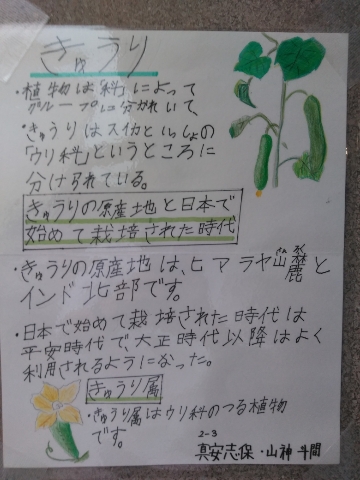 きゅうり
・植物は「科」によって
グループに分かれいて、
・きゅうりはスイカといっしょの
「ウリ科」というところに
分けられている。
きゅうりの原産地と日本で
始めて栽培された時代
・きゅうりの原産地は、ヒマラヤ山麓と
インド北部です。
・日本で始めて栽培された時代は
平安時代で大正時代以降はよく
利用されるようになった。
きゅうり属
・きゅうり属はウリ科のつる植物
です。
2-3
真安志保・山神 斗間